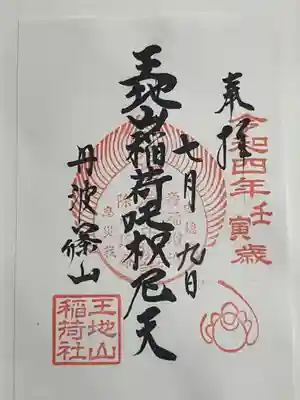 奉拝
令和四年壬寅歳
七月九日
王地山稲荷吒枳尼天
丹波篠山
王地山
稲荷社